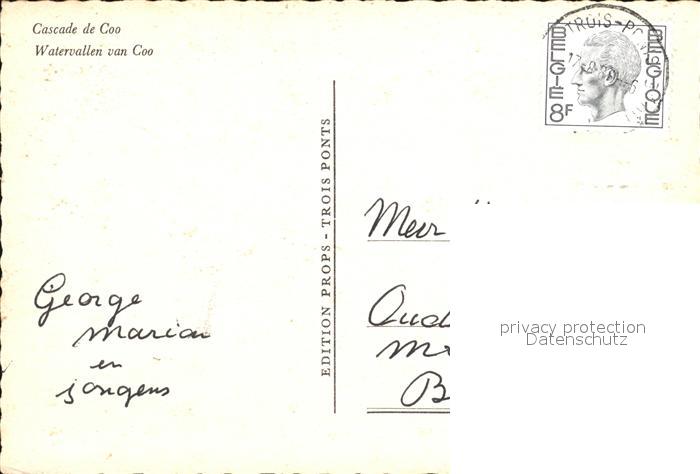 Cascade de Coo
Watervallen van Coo
BELGIE 8F BELGIQUE
TROIS-PONTS
EDITION PROPS - TROIS PONTS
George
Marian
en
jongens
privacy protection
Datenschutz